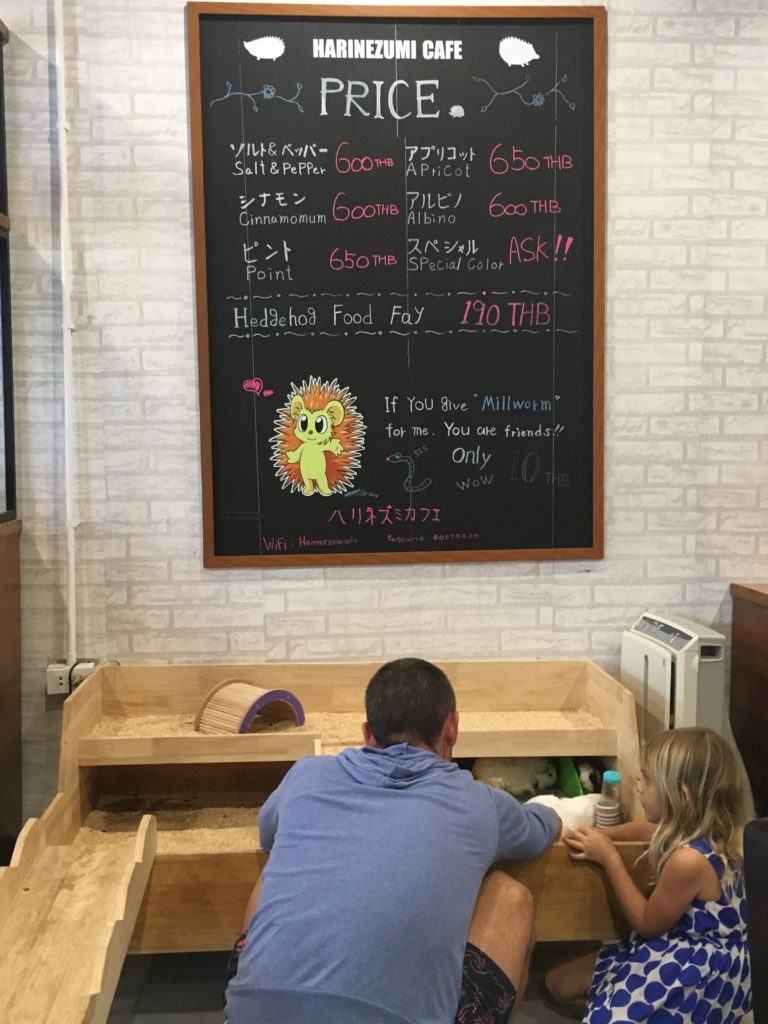 HARINEZUMI CAFE
PRICE.
ソルト&ペッパー 600THB アプリコット 650THB
Salt & PePPer APriCot
シナモン 600THB アルビノ 600THB
Cinnamomum Albino
ピント 650THB スペシャル ASK!!
Point SPecial Color
Hedgehog Food Fay 190 THB
If You give "Millworm"
for me. You are friends!!
555 Only 10 THB
WoW
ハリネズミカフェ
WiFi: